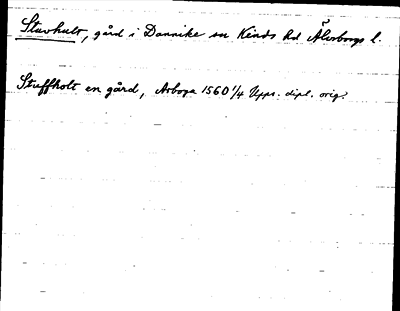 Stuvhult, gård i Dannike sn Kinds hd Älvsborgs l.
Stuffholt en gård, Arboga 1560 1/4 Upps. dipl. orig.